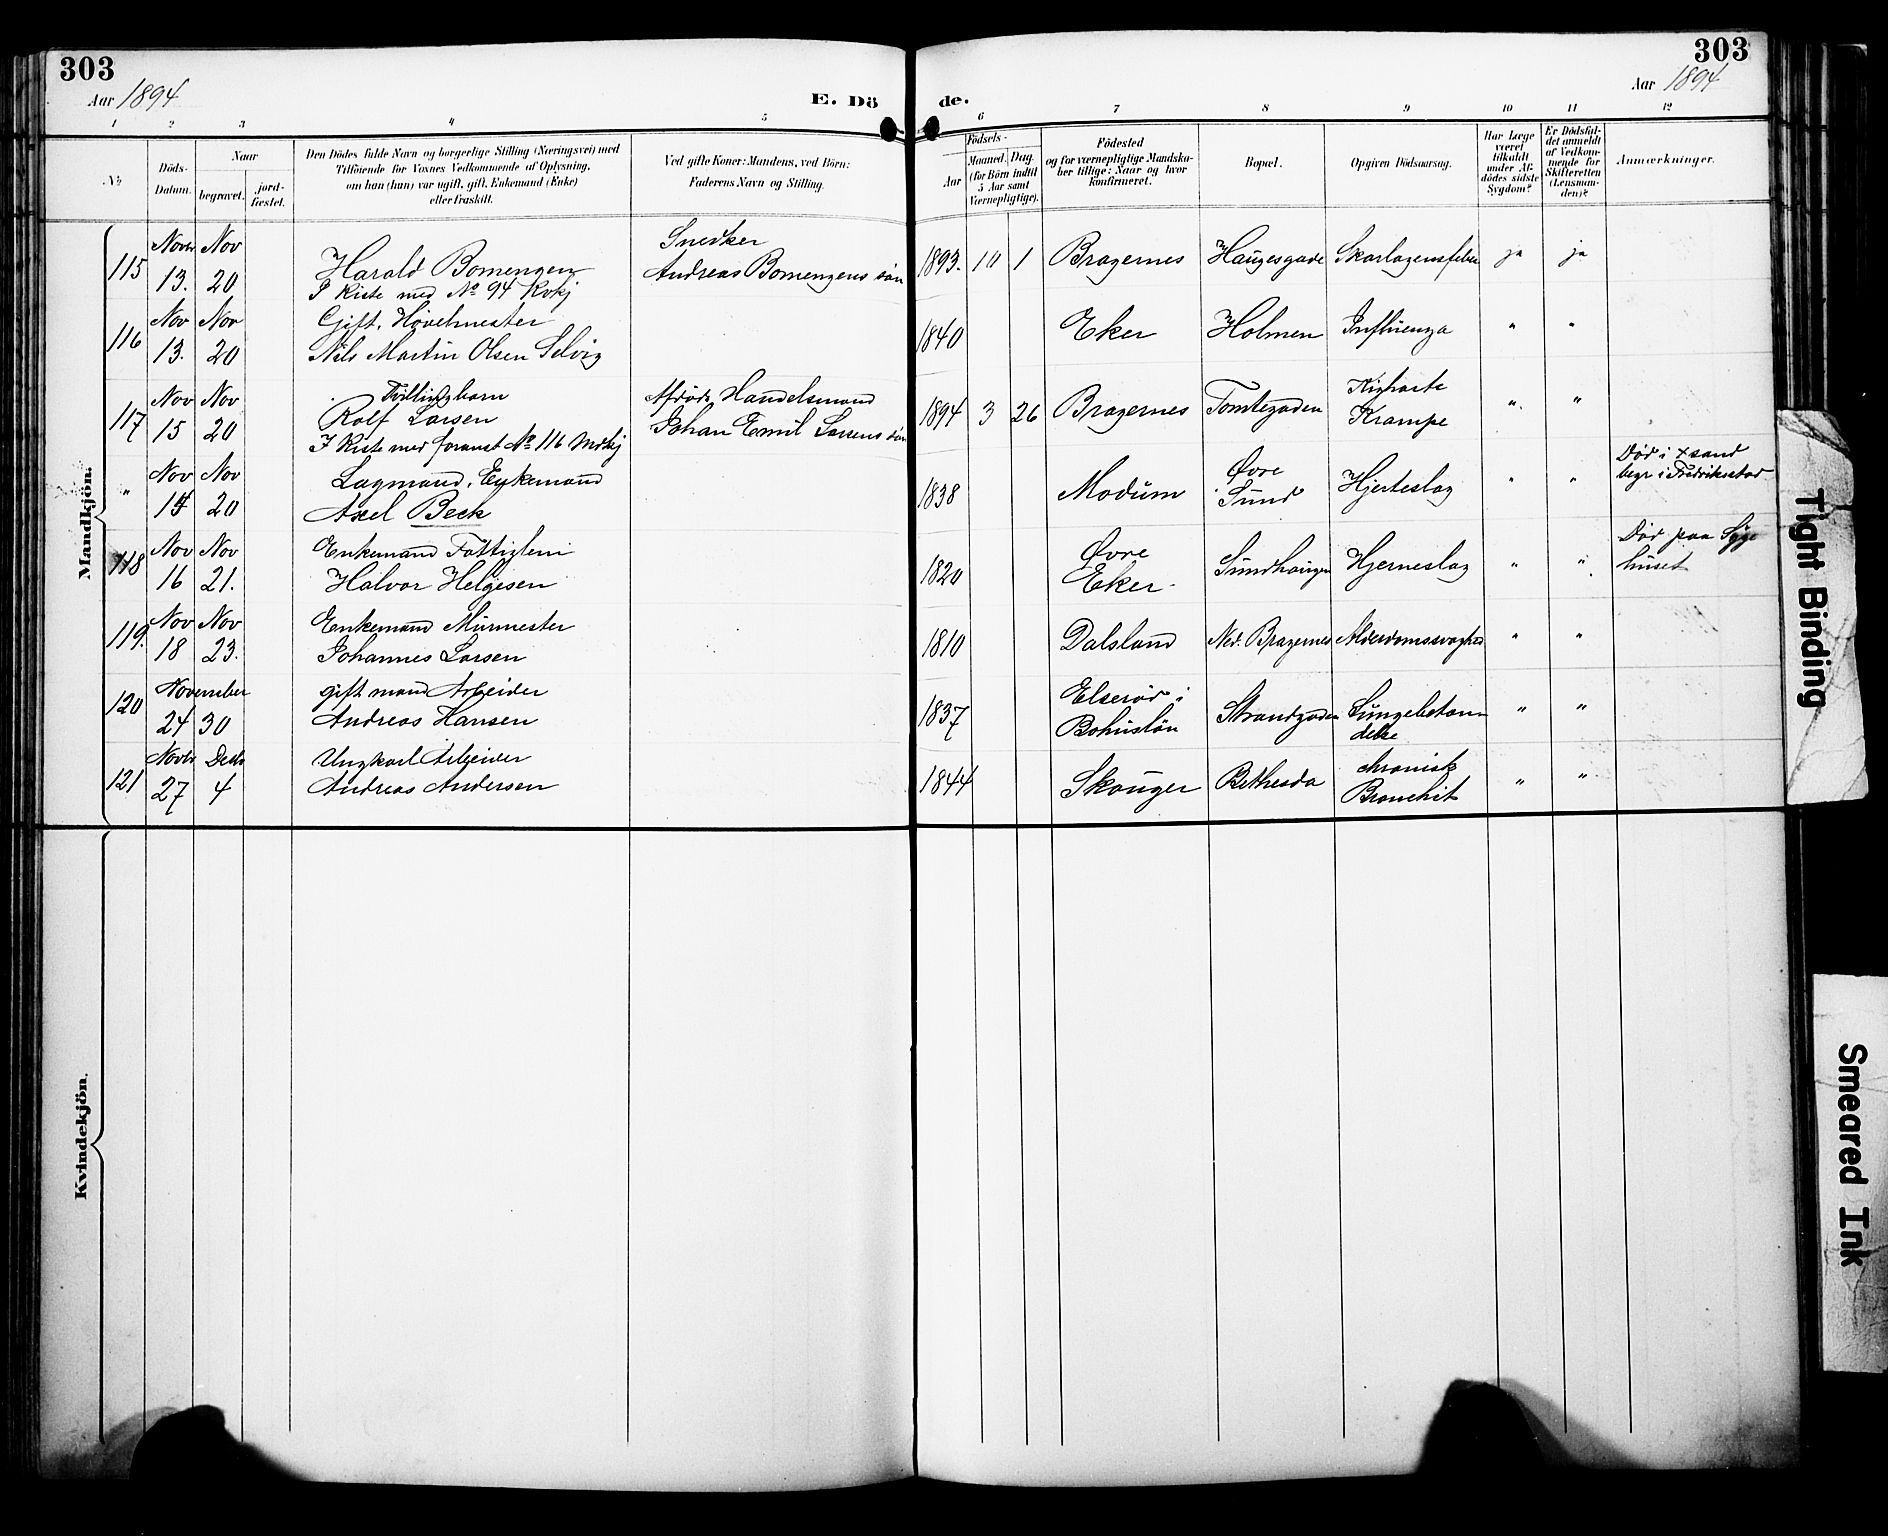 303
303
Aar 1894
E. Dö
de.
Aar 1894
1 2 3 4 5 6 7 8 9 10 11 12
No
Döds-
Datum.
Naar
begravet.
jord-
fæstet.
Den Dödes fulde Navn og borgerlige Stilling (Næringsvei) med
Tilföiende for Voxnes Vedkommende af Oplysning,
om han (hun) var ugift, gift, Enkemand (Enke)
eller fraskilt.
Ved gifte Koner: Mandens, ved Börn:
Faderens Navn og Stilling.
Födsels-
Aar
Maaned.
Dag.
(for Börn indtil
5 Aar samt
Værnepligtige).
Födested
og for værnepligtige Mandska-
ber tillige: Naar og hvor
konfirmeret.
Bopæl.
Opgiven Dödsaarsag.
Har Læge
været
tilkaldt
under Af-
dödes sidste
Sygdom?
Er Dödsfal-
det anmeldt
af Vedkom-
mende for
Skifteretten
(Lensman-
den)?
Anmærkninger.
Mandkjön.
115 Novbr 13. Nov 20 Harald Bomengen
I Kiste med No 94 Kvkj
Snedker
Andreas Bomengens søn
1893. 10 1 Bragernes Haugesgade Skarlagensfeber ja ja
116 Nov 13. Nov 20 Gift, Høvelmester
Nils Martin Olsen Selvig
1840 Eker Holmen Influenza " "
117 Nov 15 Nov 20 Tvillingbarn
Rolf Larsen
I Kiste med foranst No 116 Mdkj
Afdøde Handelsmand
Johan Emil Larsens søn
1894 3 26 Bragernes Tomtegaden Kighoste
Krampe " "
" Nov 15 Nov 20 Lagmand, Enkemand
Axel Beck
1838 Modum Øvre
Sund Hjerteslag " "
Død i xsand
begr i Fredriksstad
118 Nov 16 Nov 21. Enkemand Fattiglem
Halvor Helgesen
1820 Øvre
Eker Sundhaugen Hjerneslag " "
Død paa Syge
huset
119. Nov 18 Nov 23. Enkemand Murmester
Johannes Larsen
1810 Dalsland Ned. Bragernes Alderdomssvaghed " "
120 November 24 30 gift mand Arbeider
Andreas Hansen
1837 Elserød i
Bohuslän Strandgaden Lungebetæn
delse " "
121 Novbr 27 Decbr 4 Ungkarl Arbeider
Andreas Andersen
1844 Skouger Bethesda chronisk
Bronchit " "
Kvindekjön.
Tight Binding
Smeared Ink